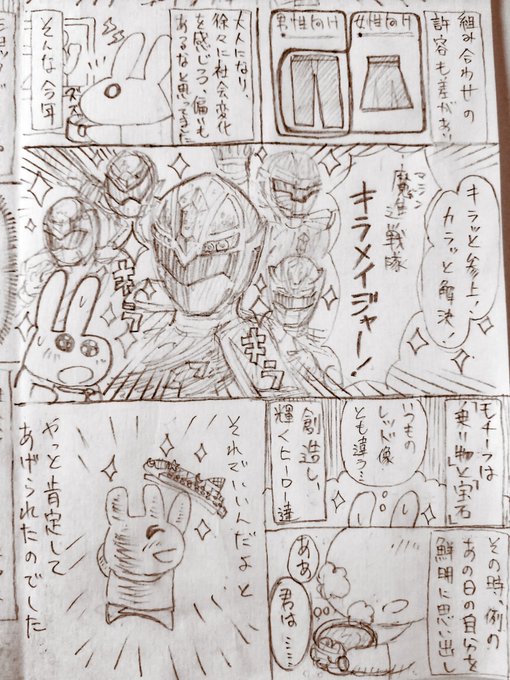 組み合わせの
許容も差があり
女性向け
男性向け
大人になり、
徐々に社会変化
を感じつつ、偏りも
あるなと思ってきた
そんな今年
キラッと参上!
カラッと解決!
マシン
魔進戦隊
キラメイジャー!
キラ
キラ
モチーフは
「乗り物」と「宝石」
いつもの
レッド像
とも違う…
創造し、
輝くヒーロー達
その時、例の
あの日の自分を
鮮明に思い出し
ああ
君は……
それでいいんだよ と
やっと肯定して
あげられたのでした